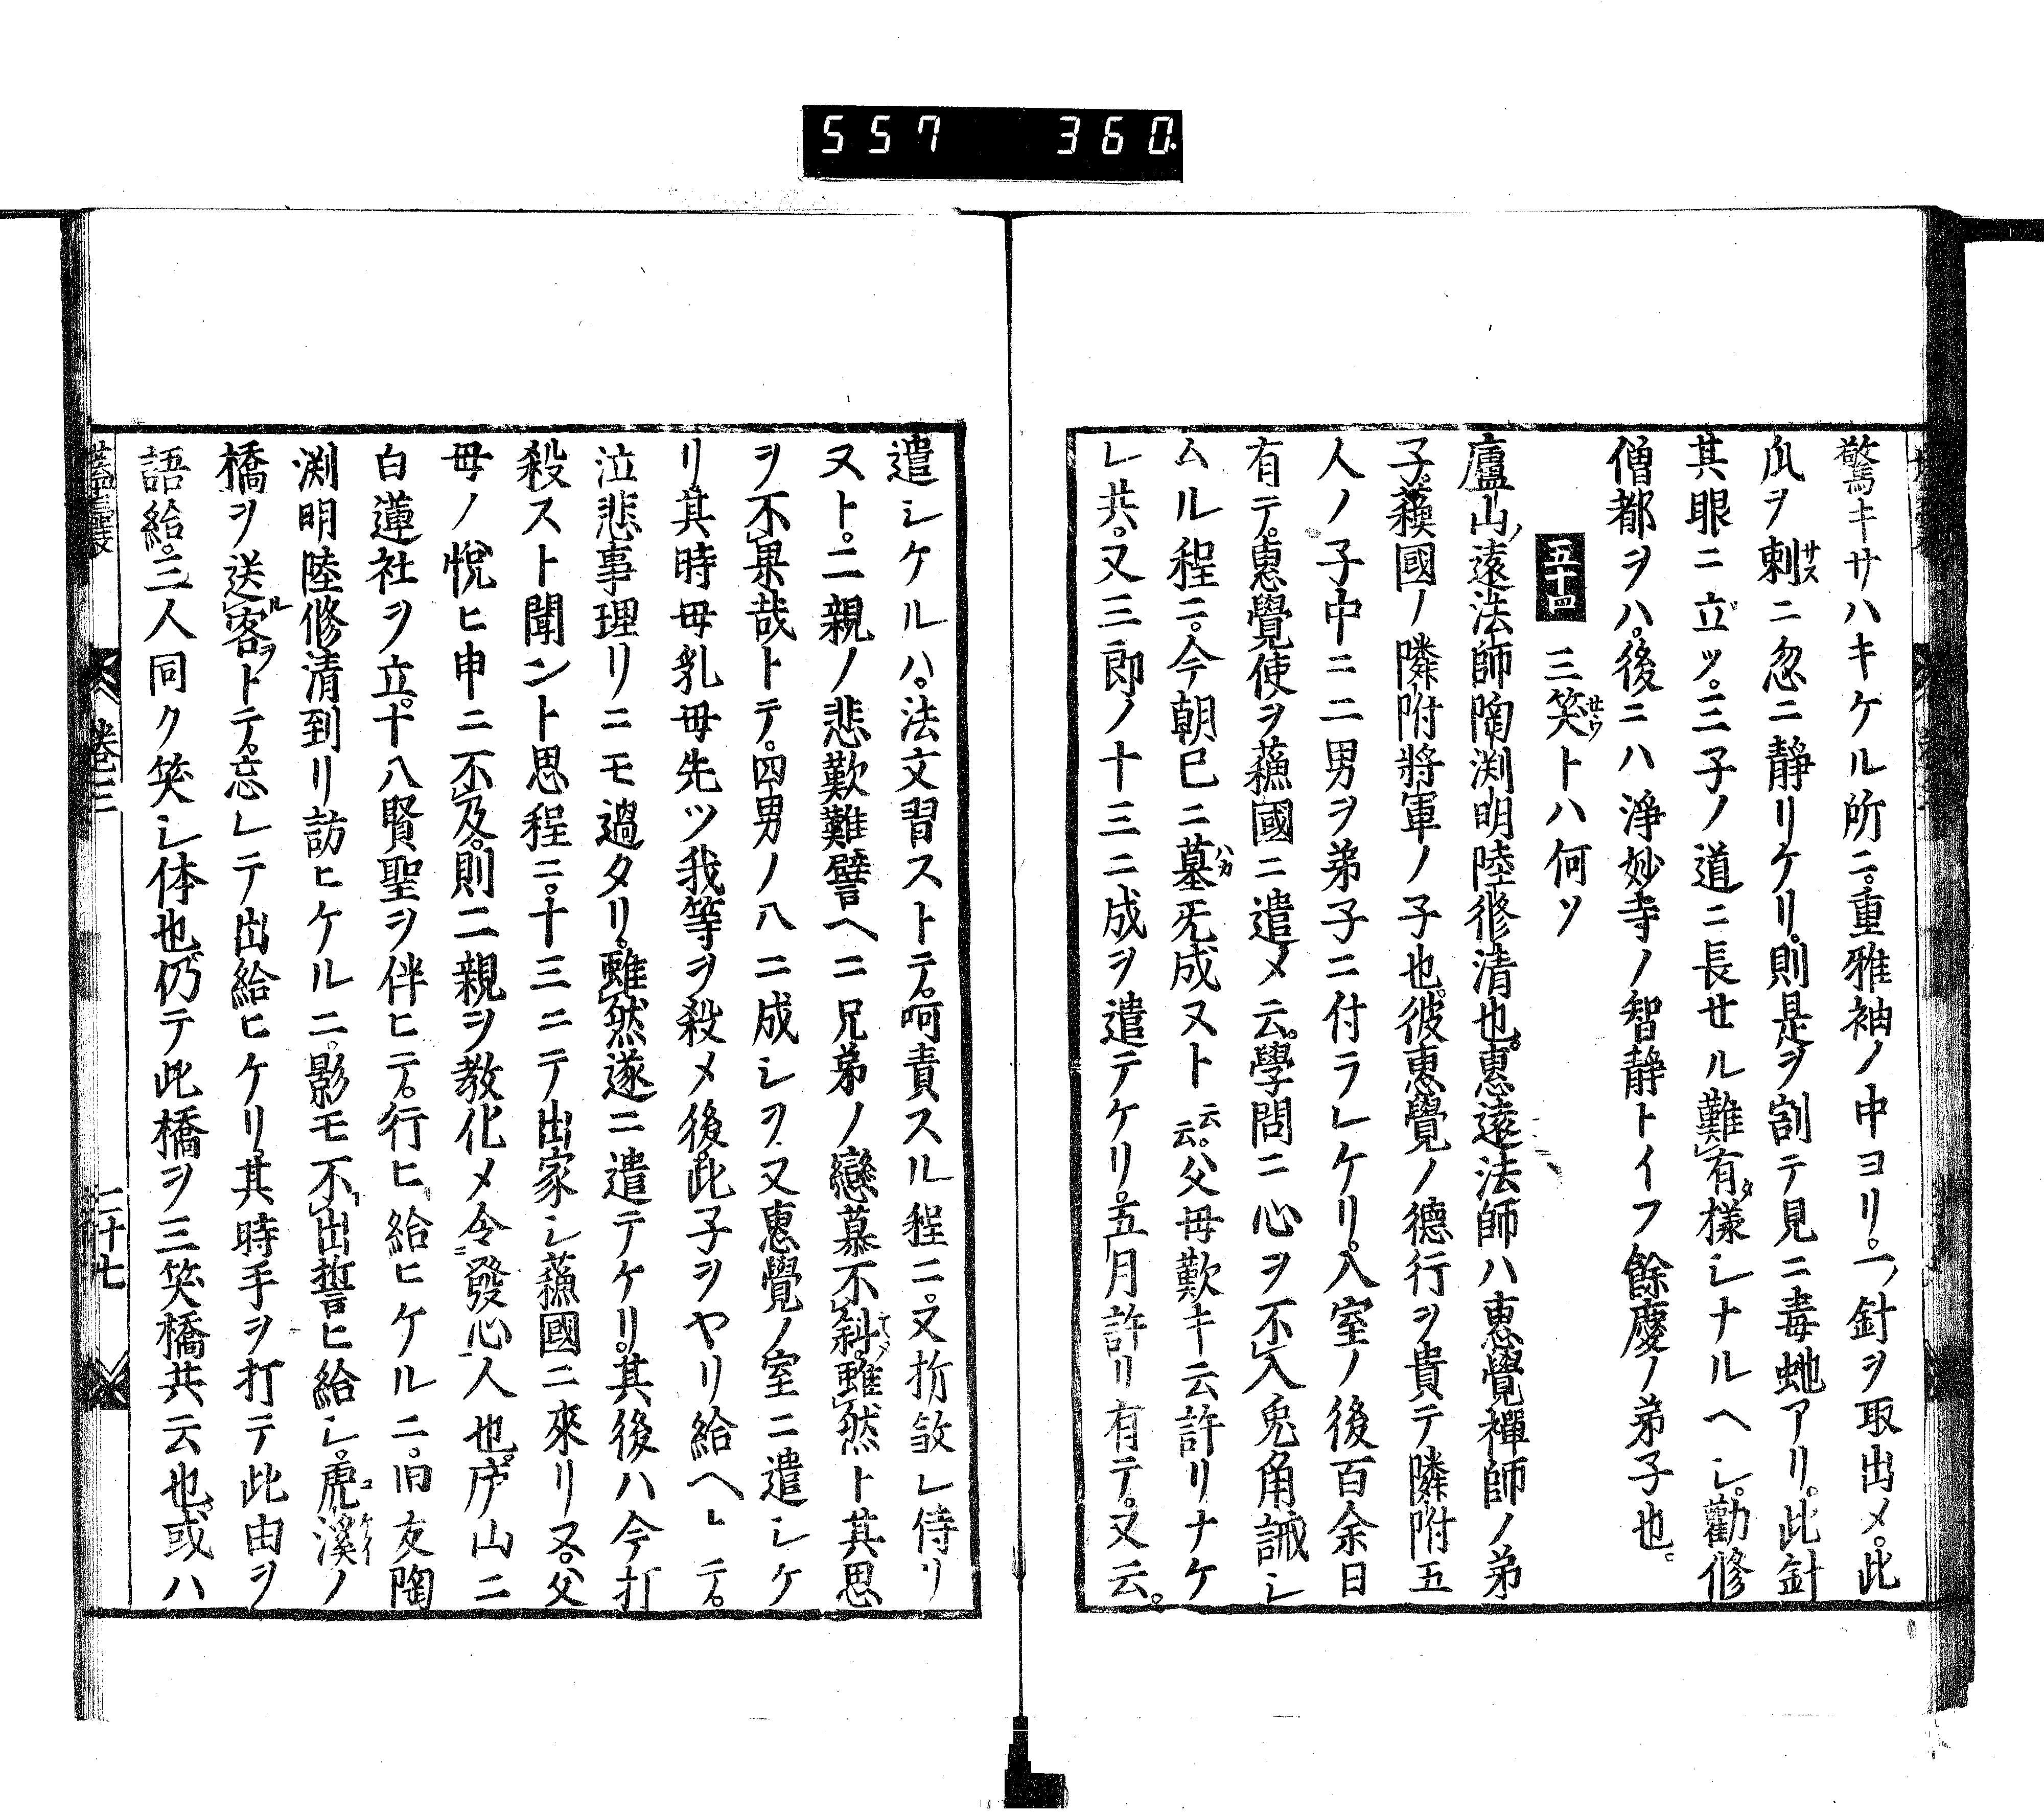 557 360
驚キサハキケル所ニ。重雅袖ノ中ヨリ。一針ヲ取出メ。此
瓜ヲ刺ニ忽ニ靜リケリ。則是ヲ割テ見ニ毒虵アリ。此針
其眼ニ立ツ。三子ノ道ニ長セル難有様シナルヘシ。勸修
僧都ヲハ。後ニハ淨妙寺ノ智靜トイフ餘慶ノ弟子也。
五十四 三笑トハ何ソ
廬山遠法師陶渕明陸修清也。惠遠法師ハ惠覺禪師ノ弟
子。蘓國ノ隣附將軍ノ子也。彼惠覺ノ德行ヲ貴テ隣附五
人ノ子中ニ二男ヲ弟子ニ付ラレケリ。入室ノ後百余日
有テ。惠覺使ヲ蘓國ニ遣メ云。學問ニ心ヲ不入兎角誡シ
ムル程ニ。今朝已ニ墓旡成ヌト云云。父母歎キ云許リナケ
レ共。又三郎ノ十三ニ成ヲ遣テケリ。五月許リ有テ。又云。
遣シケルハ。法文習ストテ。呵責スル程ニ。又折敛レ侍リ
ヌト。二親ノ悲歎難譬ヘニ兄弟ノ戀慕不斜。雖然ト其思
ヲ不果哉トテ。四男ノ八ニ成シヲ又惠覺ノ室ニ遣シケ
リ。其時母乳母先ツ我等ヲ殺メ後。此子ヲヤリ給ヘトテ。
泣悲事理リニモ過タリ。雖然遂ニ遣テケリ。其後ハ今打
殺スト聞ント思程ニ。十三ニテ出家シ蘓國ニ來リヌ。父
母ノ悅ヒ申ニ不及。則二親ヲ教化メ令發心人也。庐山ニ
白蓮社ヲ立。十八賢聖ヲ伴ヒテ。行ヒ給ヒケルニ。旧友陶
渕明陸修清到リ訪ヒケルニ。影モ不出誓ヒ給シ。虎溪ノ
橋ヲ送客トテ。忘レテ出給ヒケリ。其時手ヲ打テ此由ヲ
語給。三人同ク笑シ体也。仍テ此橋ヲ三笑橋共云也。或ハ
卷三 二十七